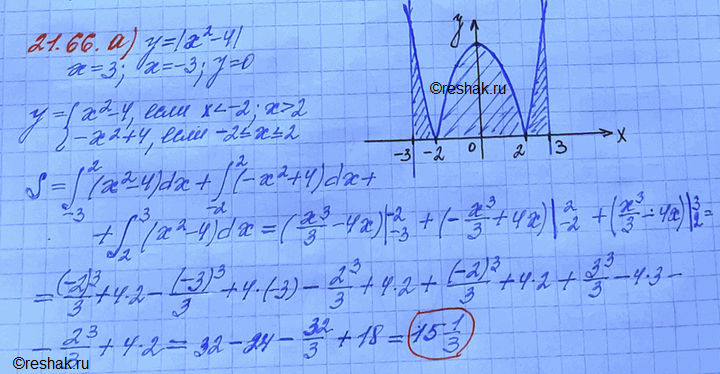 21.66. а) y=|x²-4|
x=3; x=-3; y=0
y={x²-4, если x<-2; x>2
-x²+4, если -2≤x≤2
y
©reshak.ru
-3 -2 0 2 3 x
S=∫₋₃²(x²-4)dx+∫₋₂²(-x²+4)dx+
+∫₂³(x²-4)dx=(x³/3-4x)|₋₃⁻²+(-x³/3+4x)|₋₂²+(x³/3-4x)|₂³=
=(-2)³/3+4·2-(-3)³/3+4·(-3)-2³/3+4·2+(-2)³/3+4·2+3³/3-4·3-
-2³/3+4·2=32-24-32/3+18=15 1/3
©reshak.ru